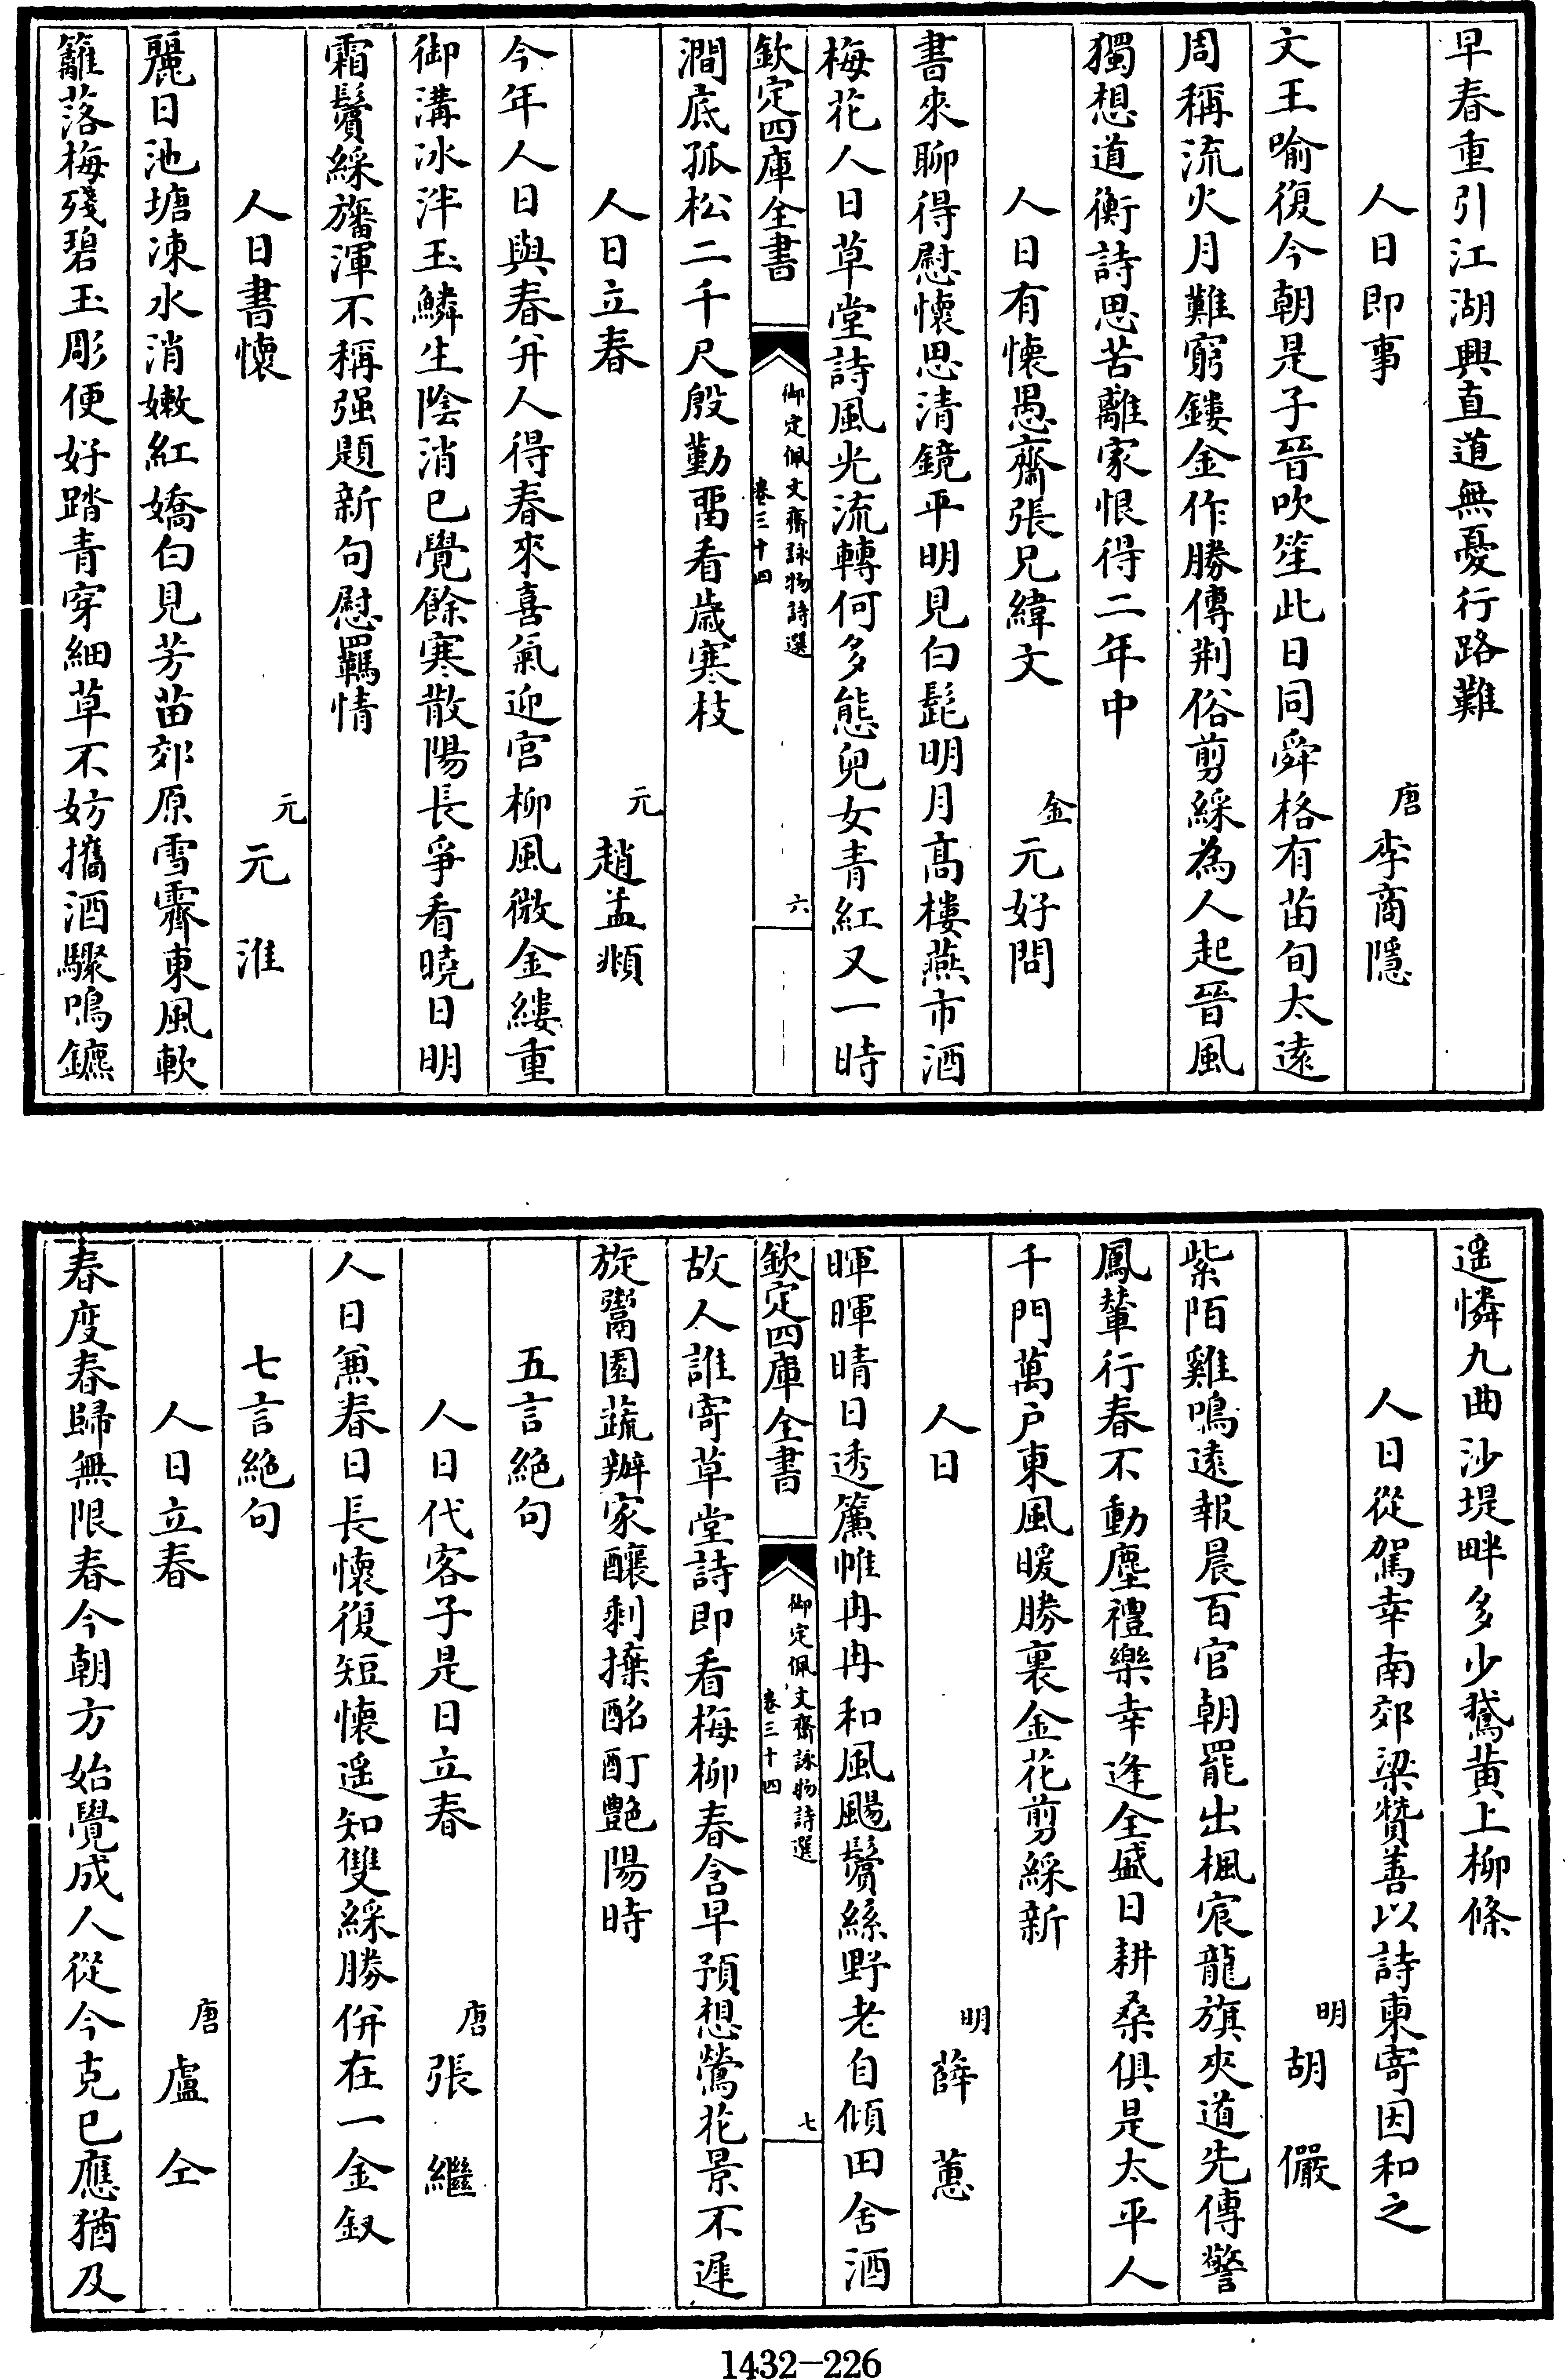 早春重引江湖興直道無憂行路難
人日即事
唐李商隱
文王喻復今朝是子晉吹笙此日同舜格有苗旬太遠
周稱流火月難窮鏤金作勝傳荆俗剪綵為人起晉風
獨想道衡詩思苦離家恨得二年中
人日有懷愚齋張兄緯文
金元好問
書來聊得慰懷思清鏡平明見白髭明月高樓燕市酒
梅花人日草堂詩風光流轉何多態兒女青紅又一時
欽定四庫全書
御定佩文齋詠物詩選
卷三十四
六
澗底孤松二千尺殷勤留看歲寒枝
人日立春
元趙孟頫
今年人日與春并人得春來喜氣迎宮柳風微金縷重
御溝冰泮玉鱗生陰消已覺餘寒散陽長爭看曉日明
霜鬢綵旛渾不稱强題新句慰羈情
人日書懷
元元淮
麗日池塘凍水消嫩紅嬌白見芳苗郊原雪霽東風軟
籬落梅殘碧玉彫便好踏青穿細草不妨攜酒驟鳴鑣
遥憐九曲沙堤畔多少鵝黄上柳條
人日從駕幸南郊梁贊善以詩柬寄因和之
明胡儼
紫陌雞鳴遠報晨百官朝罷出楓宸龍旗夾道先傳警
鳳輦行春不動塵禮樂幸逢全盛日耕桑俱是太平人
千門萬戶東風暖勝裏金花剪綵新
人日
明薛蕙
暉暉晴日透簾帷冉冉和風颺鬢絲野老自傾田舍酒
欽定四庫全書
御定佩文齋詠物詩選
卷三十四
七
故人誰寄草堂詩即看梅柳春含早預想鶯花景不遲
旋鬻園蔬辦家釀剩㨾酩酊艶陽時
五言絶句
人日代客子是日立春
唐張繼
人日兼春日長懷復短懷遥知雙綵勝併在一金釵
七言絶句
人日立春
唐盧仝
春度春歸無限春今朝方始覺成人從今克已應猶及
1432-226